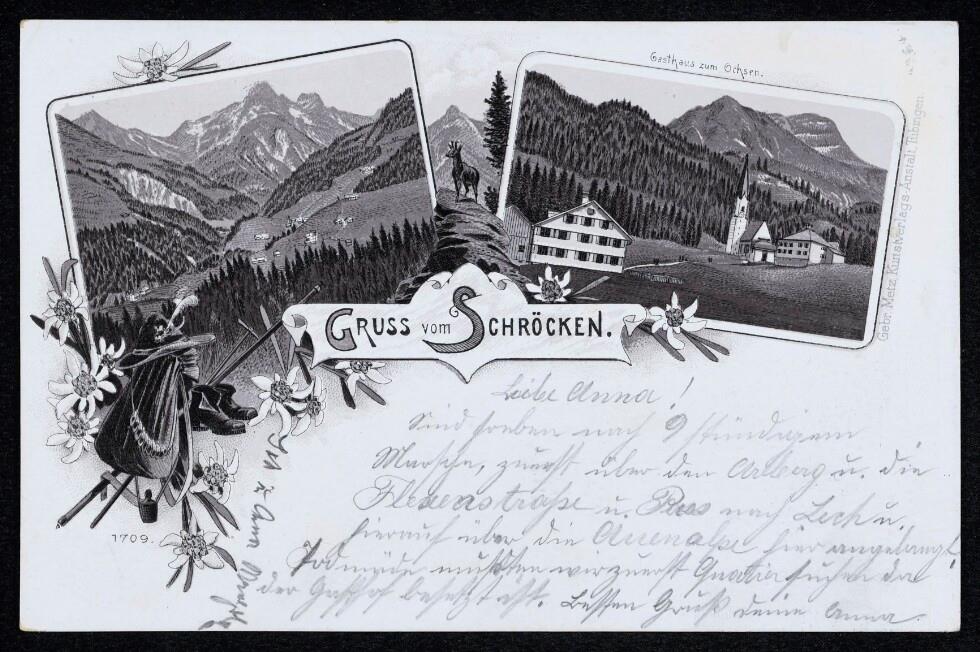 Gasthaus zum Ochsen.
Gebr. Metz Kunstverlags-Anstalt, Tübingen.
GRUSS VOM SCHRÖCKEN.
1709.
Liebe Anna!
Sind soeben nach 9 stündigem
Marsche, zuerst über den Arlberg u. die
Flexenstraße u. Pass nach Lech u.
hierauf über die Auenalpe hier angelangt!
Todmüde mußten wir zuerst Quatier suchen da
der Gasthof besetzt ist. Besten Gruß deine Anna